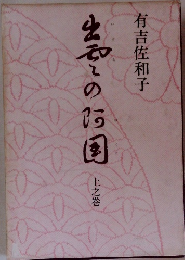 有吉佐和子
出雲の阿国
上之巻